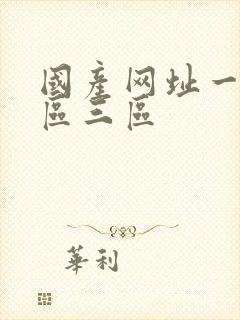 國產网址一
區三區
華利